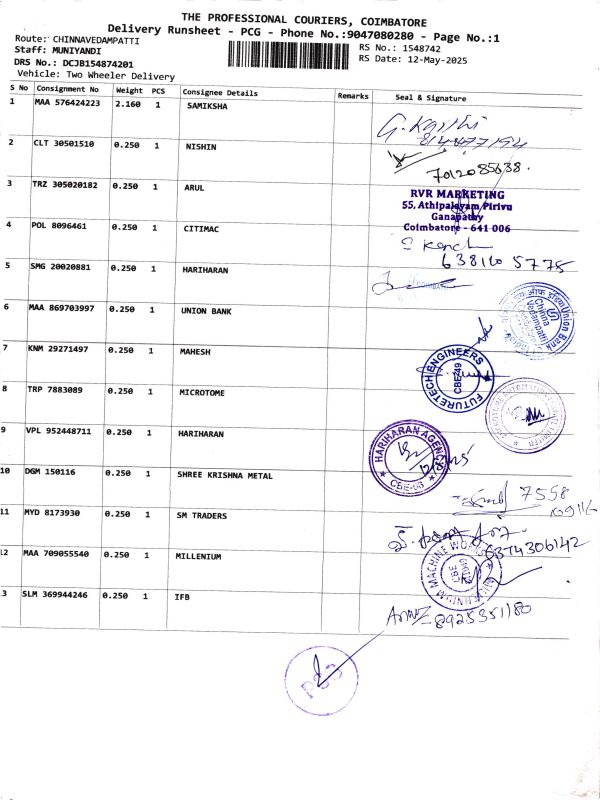 THE PROFESSIONAL COURIERS, COIMBATORE
Delivery Runsheet - PCG - Phone No.:9047080280 - Page No.:1
Route: CHINNAVEDAMPATTI
Staff: MUNIYANDI
RS No.: 1548742
DRS No.: DCJB154874201
RS Date: 12-May-2025
Vehicle: Two Wheeler Delivery
S No Consignment No Weight PCS Consignee Details Remarks Seal & Signature
1 MAA 576424223 2.160 1 SAMIKSHA
G. Karthi
2 CLT 30501510 0.250 1 NISHIN
7012085638.
3 TRZ 305020182 0.250 1 ARUL
RVR MARKETING
55, Athipalayam Pirivu
Ganapathy
Coimbatore - 641 006
4 POL 8096461 0.250 1 CITIMAC
638110 5775
5 SMG 20020881 0.250 1 HARIHARAN
6 MAA 869703997 0.250 1 UNION BANK
Union Bank
Chinna
Vedampatti
7 KNM 29271497 0.250 1 MAHESH
FUTURETECH ENGINEERS
CBE-49
8 TRP 7883089 0.250 1 MICROTOME
9 VPL 952448711 0.250 1 HARIHARAN
HARIHARAN AGENCY
CBE-06
10 DGM 150116 0.250 1 SHREE KRISHNA METAL
7558
11 MYD 8173930 0.250 1 SM TRADERS
6374306142
12 MAA 709055540 0.250 1 MILLENIUM
MILLENNIUM MACHINE WORKS
CBE
13 SLM 369944246 0.250 1 IFB
8925351180